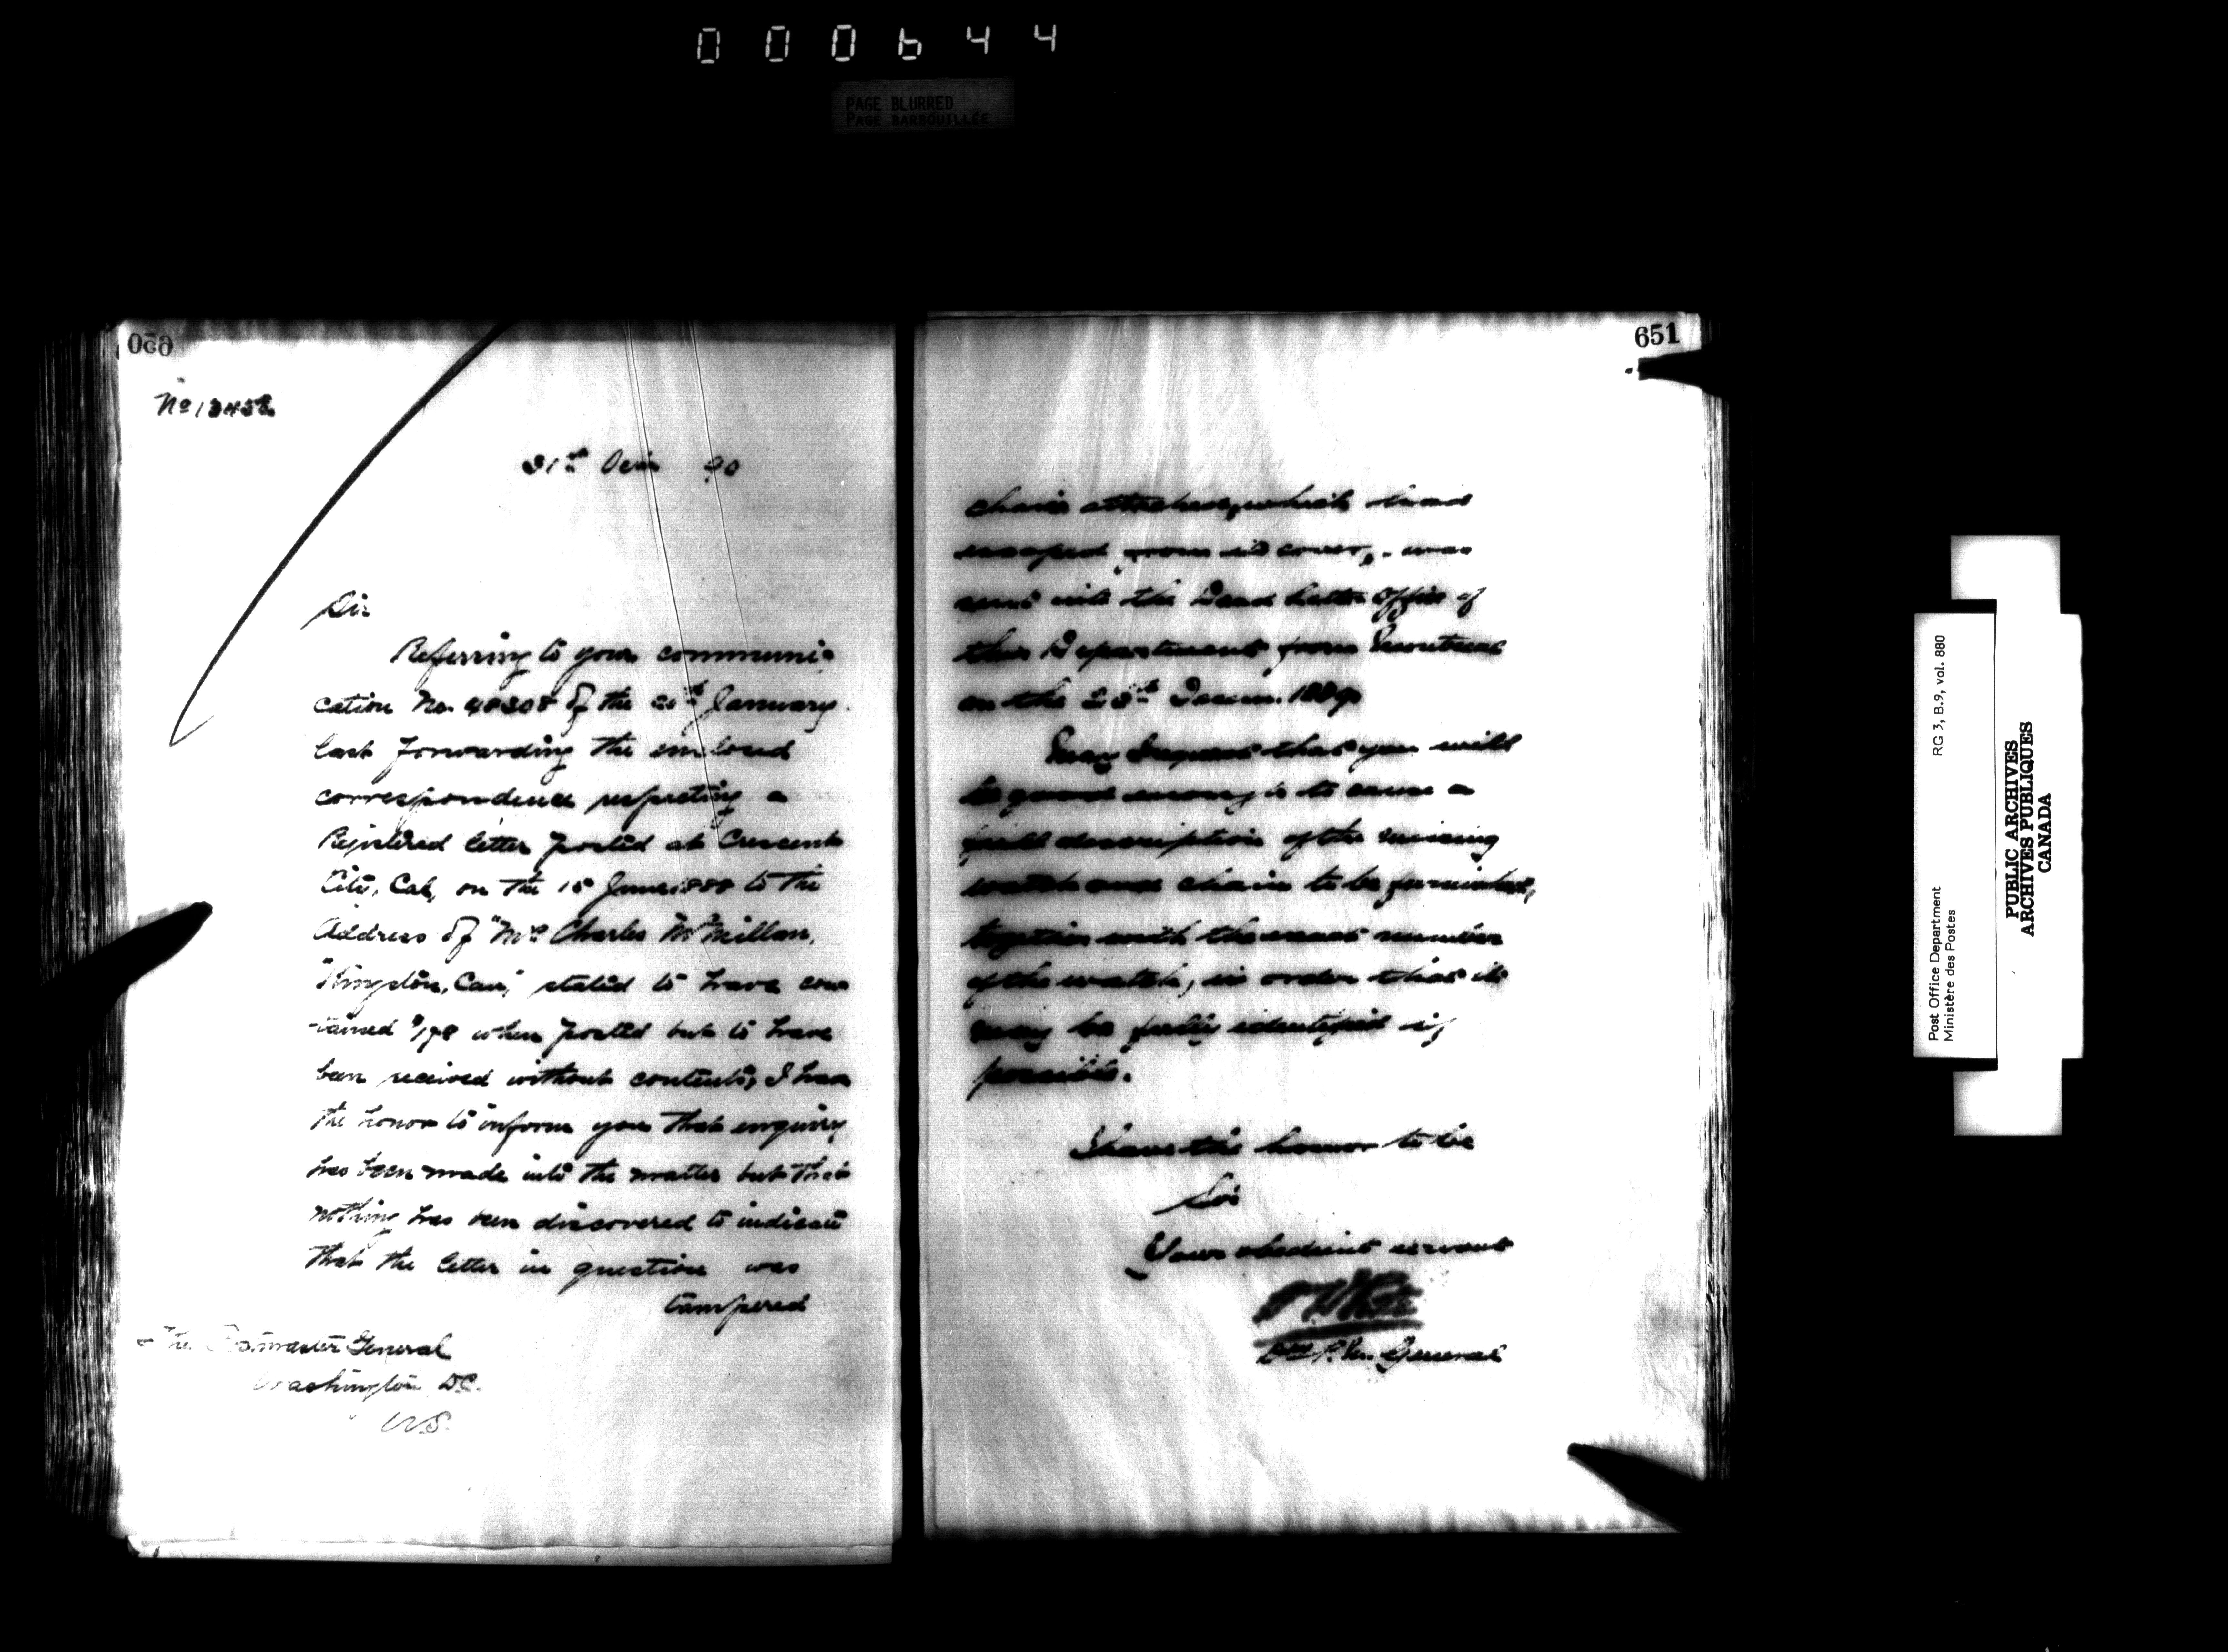 000644
PAGE BLURRED
PAGE BARBOUILLÉE
650
No 13458
31st 90
Sir
Referring to your communi-
cation No. 48308 of the 20th January
last forwarding the enclosed
correspondence respecting a
Registered letter posted at Crescent
City, Cal, on the 15 June 1888 to the
Address of "Mrs Charles McMillan,
"Kingston, Can," stated to have con
-tained $178 when posted but to have
been received without contents, I have
the honor to inform you that enquiry
has been made into the matter but that
nothing has been discovered to indicate
that the letter in question was
tampered
The Postmaster General
Washington D.C.
U.S.
651
chain attached, which had
escaped from its cover, was
sent into the Dead Letter Office of
this Department from Montreal
on the
May I request that you will
be good enough to cause a
full description of the missing
watch and chain to be furnished,
together with the exact number
of the watch, in order that it
may be fully identified if
possible.
I have the honor to be
Sir
Your obedient servant
P.M. General
Post Office Department
Ministère des Postes
RG 3, B.9, vol. 880
PUBLIC ARCHIVES
ARCHIVES PUBLIQUES
CANADA